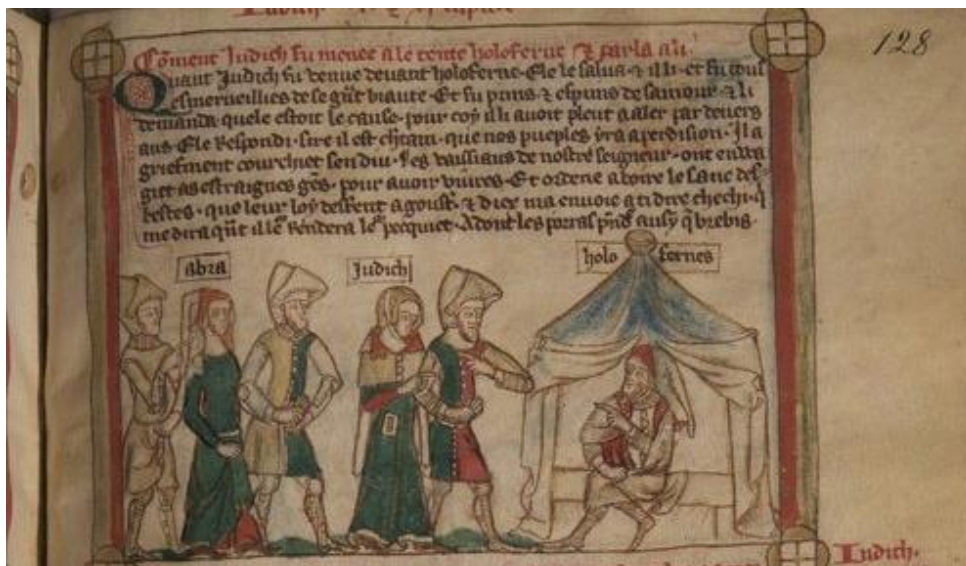 128
Cōment Judich fu menee a le tente holoferne ⁊ parla a lui
Quant Judich fu venue devant holoferne · Ele le salua · ⁊ il li · et fu tous
esmerveillies de se gñt biaute · Et fu prins ⁊ espris de samour · ⁊ li
demanda quele estoit le cause · pour coy il li avoit pleut a aler par devers
aus · Ele Respondi · sire il est chtain · que nos pueples yra a perdision · Il a
griefment courchiet sen diu · les vaissiaus de nostre seigneur · ont
giet as estraignes gēs · pour avoir vivres · Et a boire le sanc des
bestes · que leur loy desfent a gouster · ⁊ diex ma envoie a ti dire chechi · q̄
me dira qñt il le Rendera le pecquiet · Adont les porras auſy q̄ brebis ·
abra
Judich
holo fernes
Judich ·